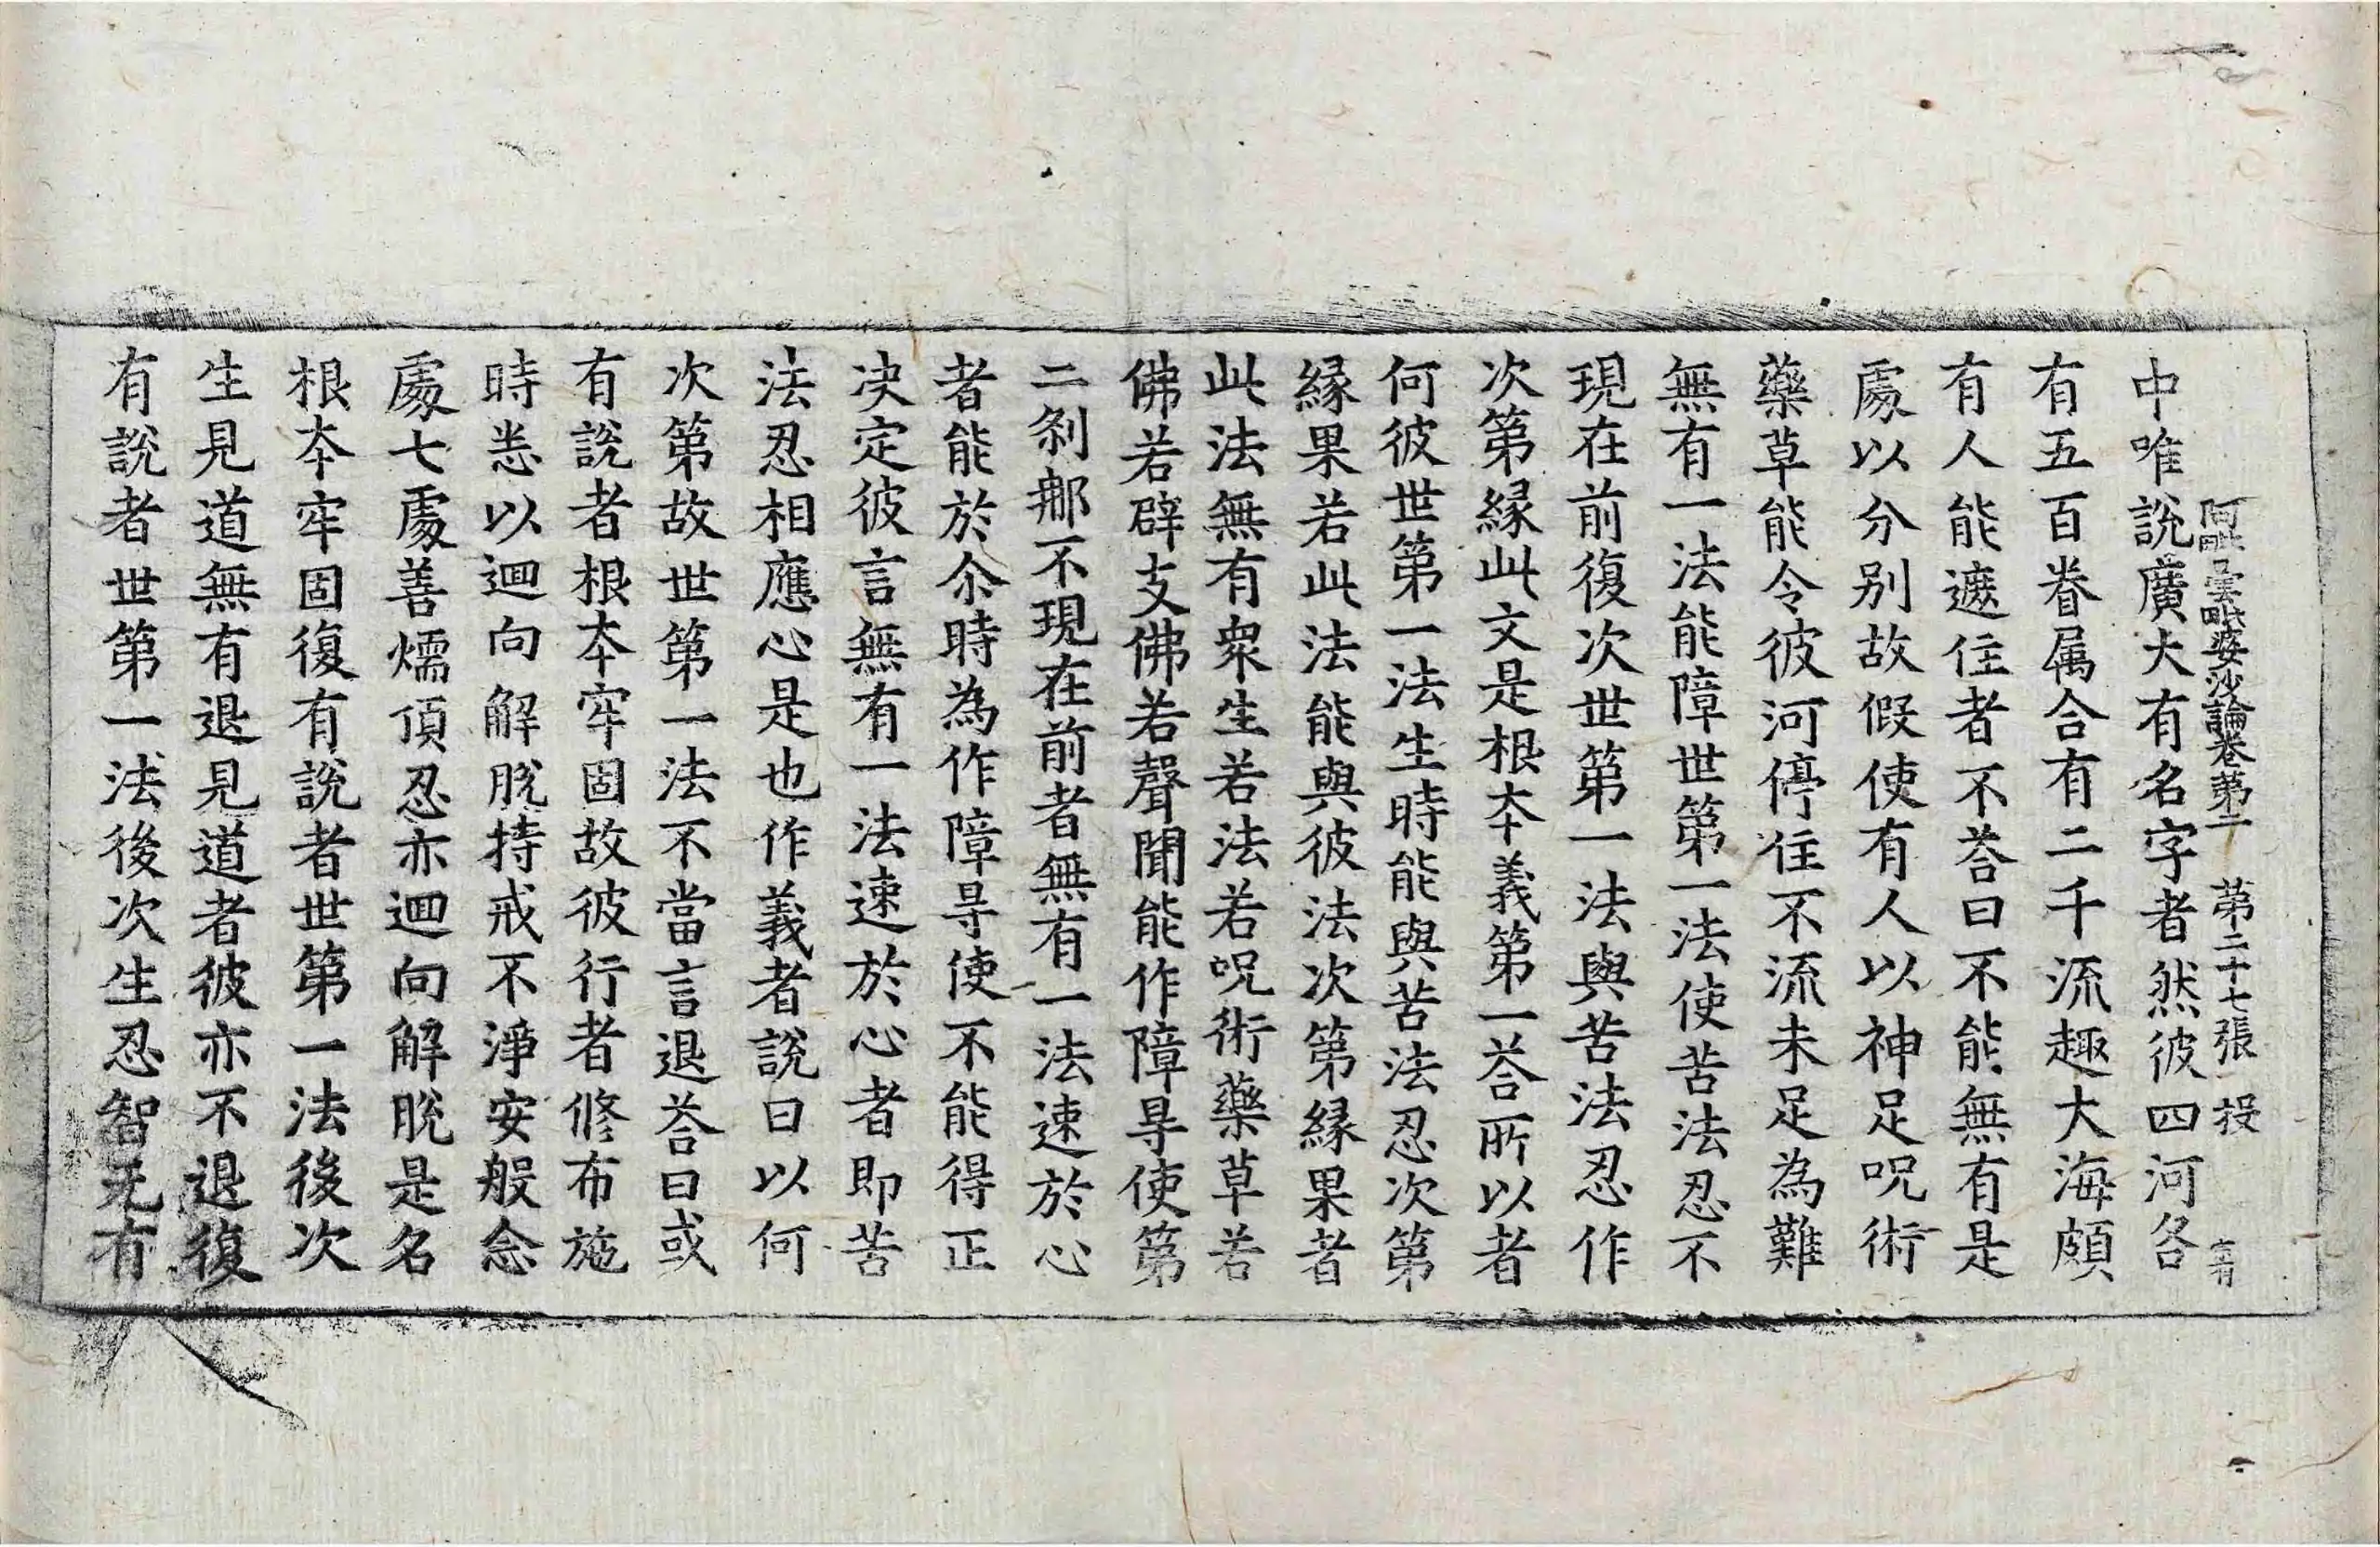 阿毗曇毗婆沙論卷第二 第二十七張 投
中唯說廣大有名字者然彼四河各
有五百眷属合有二千流趣大海頗
有人能遮住者不荅曰不能無有是
處以分别故假使有人以神足呪術
藥草能令彼河停住不流未足為難
無有一法能障世第一法使苦法忍不
現在前復次世第一法與苦法忍作
次第緣此文是根本義第一荅所以者
何彼世第一法生時能與苦法忍次第
緣果若此法能與彼法次第緣果者
此法無有眾生若法若呪術藥草若
佛若辟支佛若聲聞能作障㝵使第
二刹那不現在前者無有一法速於心
者能於尒時為作障㝵使不能得正
决定彼言無有一法速於心者即苦
法忍相應心是也作義者說曰以何
次第故世第一法不當言退荅曰或
有說者根本牢固故彼行者修布施
時悉以迴向解脫持戒不淨安般念
處七處善煗頂忍亦迴向解脫是名
根本牢固復有說者世第一法後次
生見道無有退見道者彼亦不退復
有說者世第一法後次生忍智无有